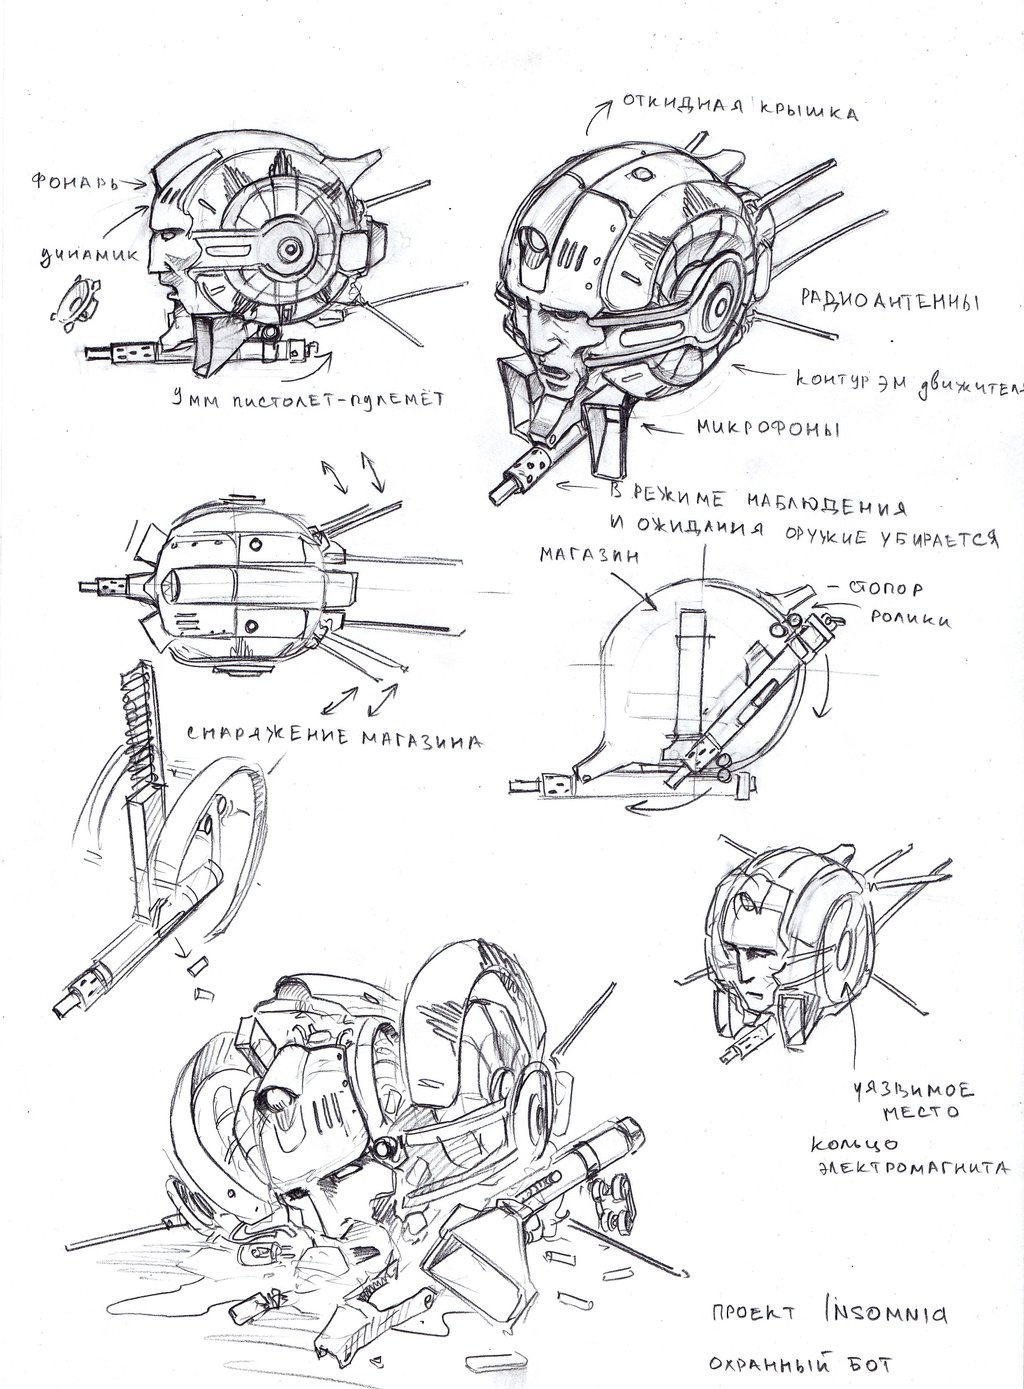 ОТКИДНАЯ КРЫШКА
ФОНАРЬ
ДИНАМИК
9ММ ПИСТОЛЕТ-ПУЛЕМЁТ
РАДИОАНТЕННЫ
КОНТУР ЭМ ДВИЖИТЕЛЯ
МИКРОФОНЫ
В РЕЖИМЕ НАБЛЮДЕНИЯ
И ОЖИДАНИЯ ОРУЖИЕ УБИРАЕТСЯ
МАГАЗИН
- СТОПОР
РОЛИКИ
СНАРЯЖЕНИЕ МАГАЗИНА
УЯЗВИМОЕ
МЕСТО
КОЛЬЦО
ЭЛЕКТРОМАГНИТА
ПРОЕКТ INSOMNIA
ОХРАННЫЙ БОТ